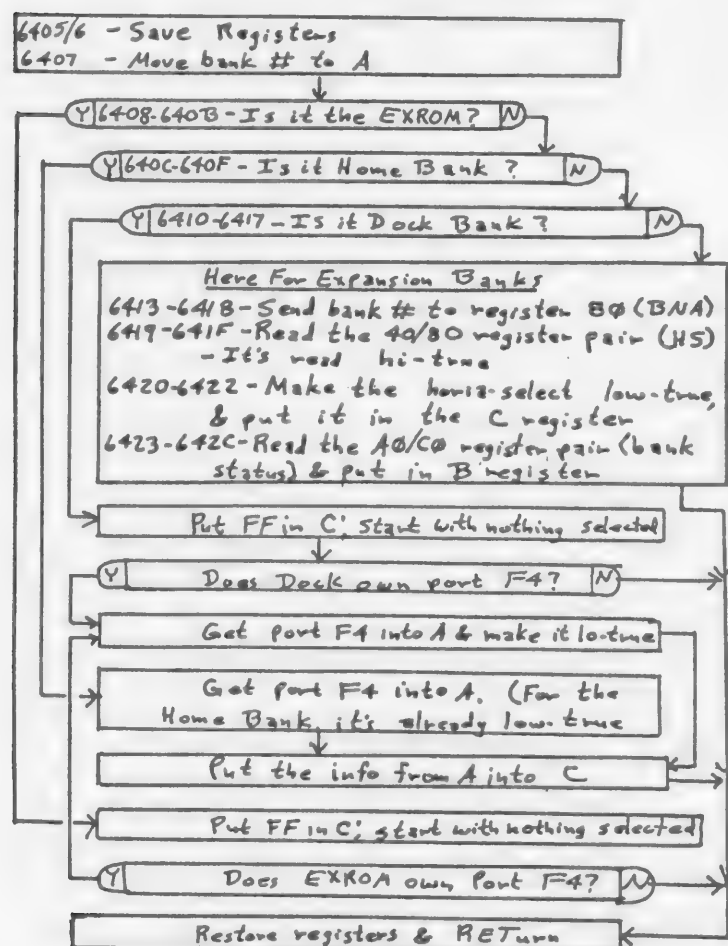 6405/6 - Save Registers
6407 - Move bank # to A
Y 6408-640B - Is it the EXROM? N
Y 640C-640F - Is it Home Bank ? N
Y 6410-6417 - Is it Dock Bank ? N
Here For Expansion Banks
6413-6418 - Send bank # to register 80 (BNA)
6419-641F - Read the 40/80 register pair (HS)
- It's read hi-true
6420-6422 - Make the horiz-select low-true,
& put it in the C register
6423-642C - Read the A0/C0 register pair (bank
status) & put in B register
Put FF in C; start with nothing selected
Y Does Dock own port F4? N
Get port F4 into A & make it lo-true
Get port F4 into A. (For the
Home Bank, it's already low-true
Put the info from A into C
Put FF in C; start with nothing selected
Y Does EXROM own Port F4? N
Restore registers & RETurn